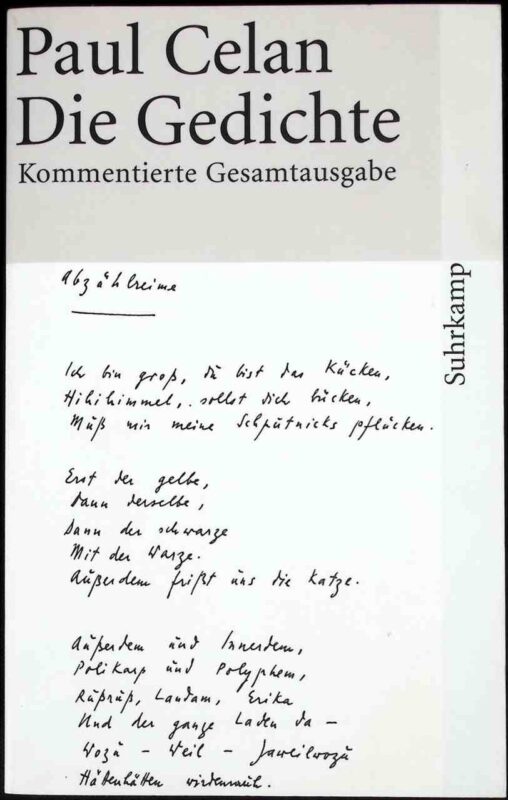 Paul Celan
Die Gedichte
Kommentierte Gesamtausgabe
Suhrkamp
Abzählreime
Ich bin groß, du bist das Kücken,
Hihihimmel, sollst dich bücken,
Muß mir meine Schputnicks pflücken.
Erst der gelbe,
Dann derselbe,
Dann der schwarze
Mit der Warze.
Außerdem frißt uns die Katze.
Außerdem und Innerdem,
Polikarp und Polyphem,
Rußruß, Landam, Erika
Und der ganze Laden da –
Wozu – Weil – Jaweilwozu
Hättenhätten wirdennuch.